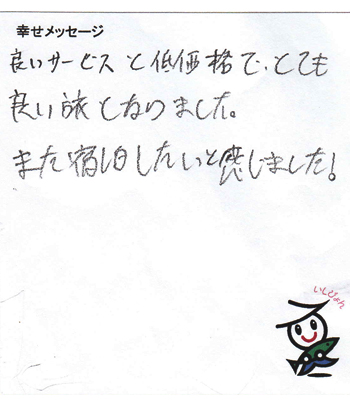 幸せメッセージ
良いサービスと低価格で、とても
良い旅となりました。
また宿泊したいと感じました!
いしぴょん